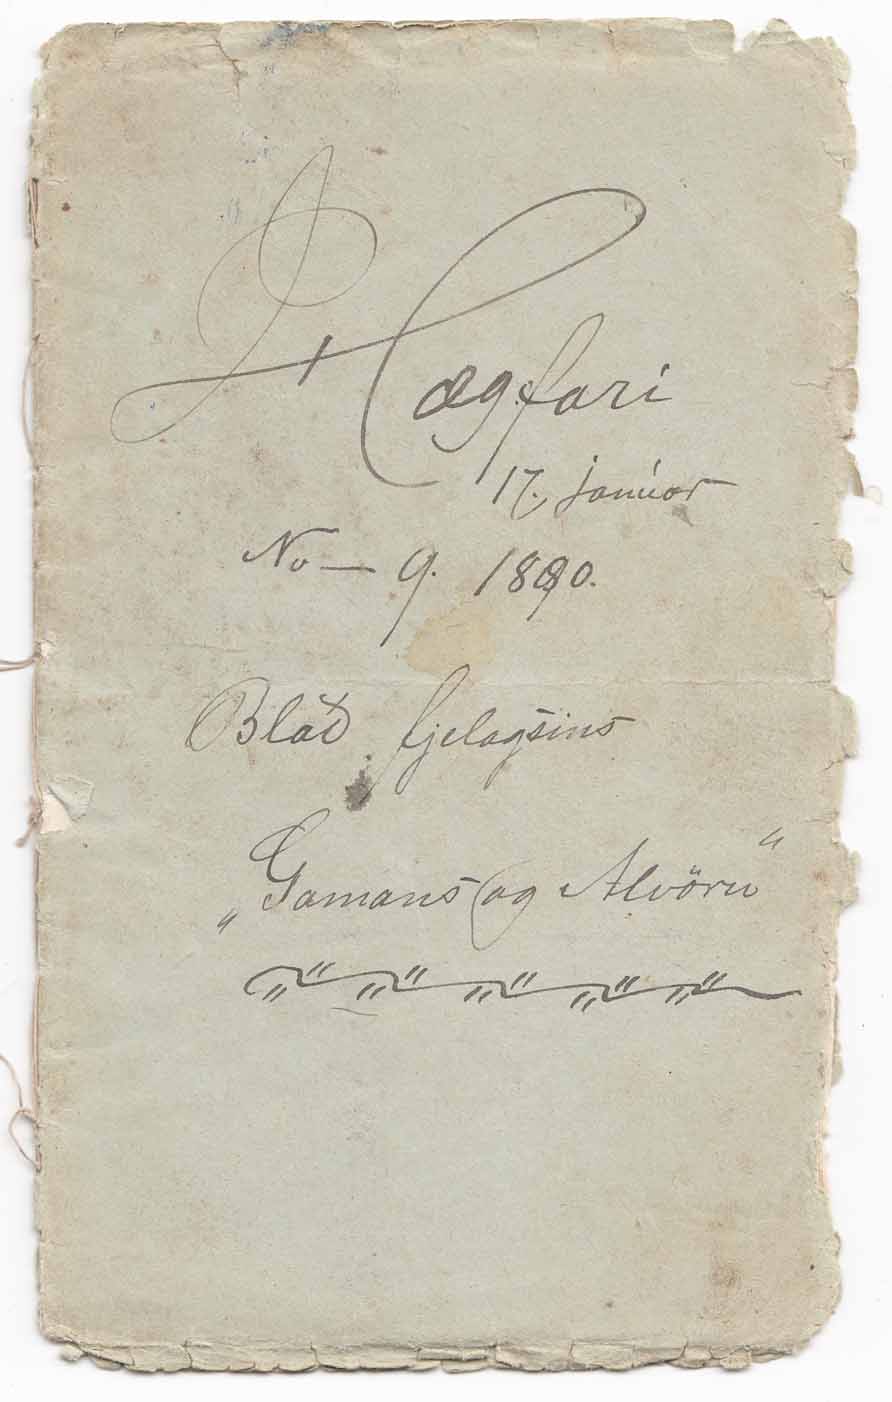 Hægfari
17. januar
No — 9. 1890.
Blað fjelagsins
„Gamans og Alvöru“